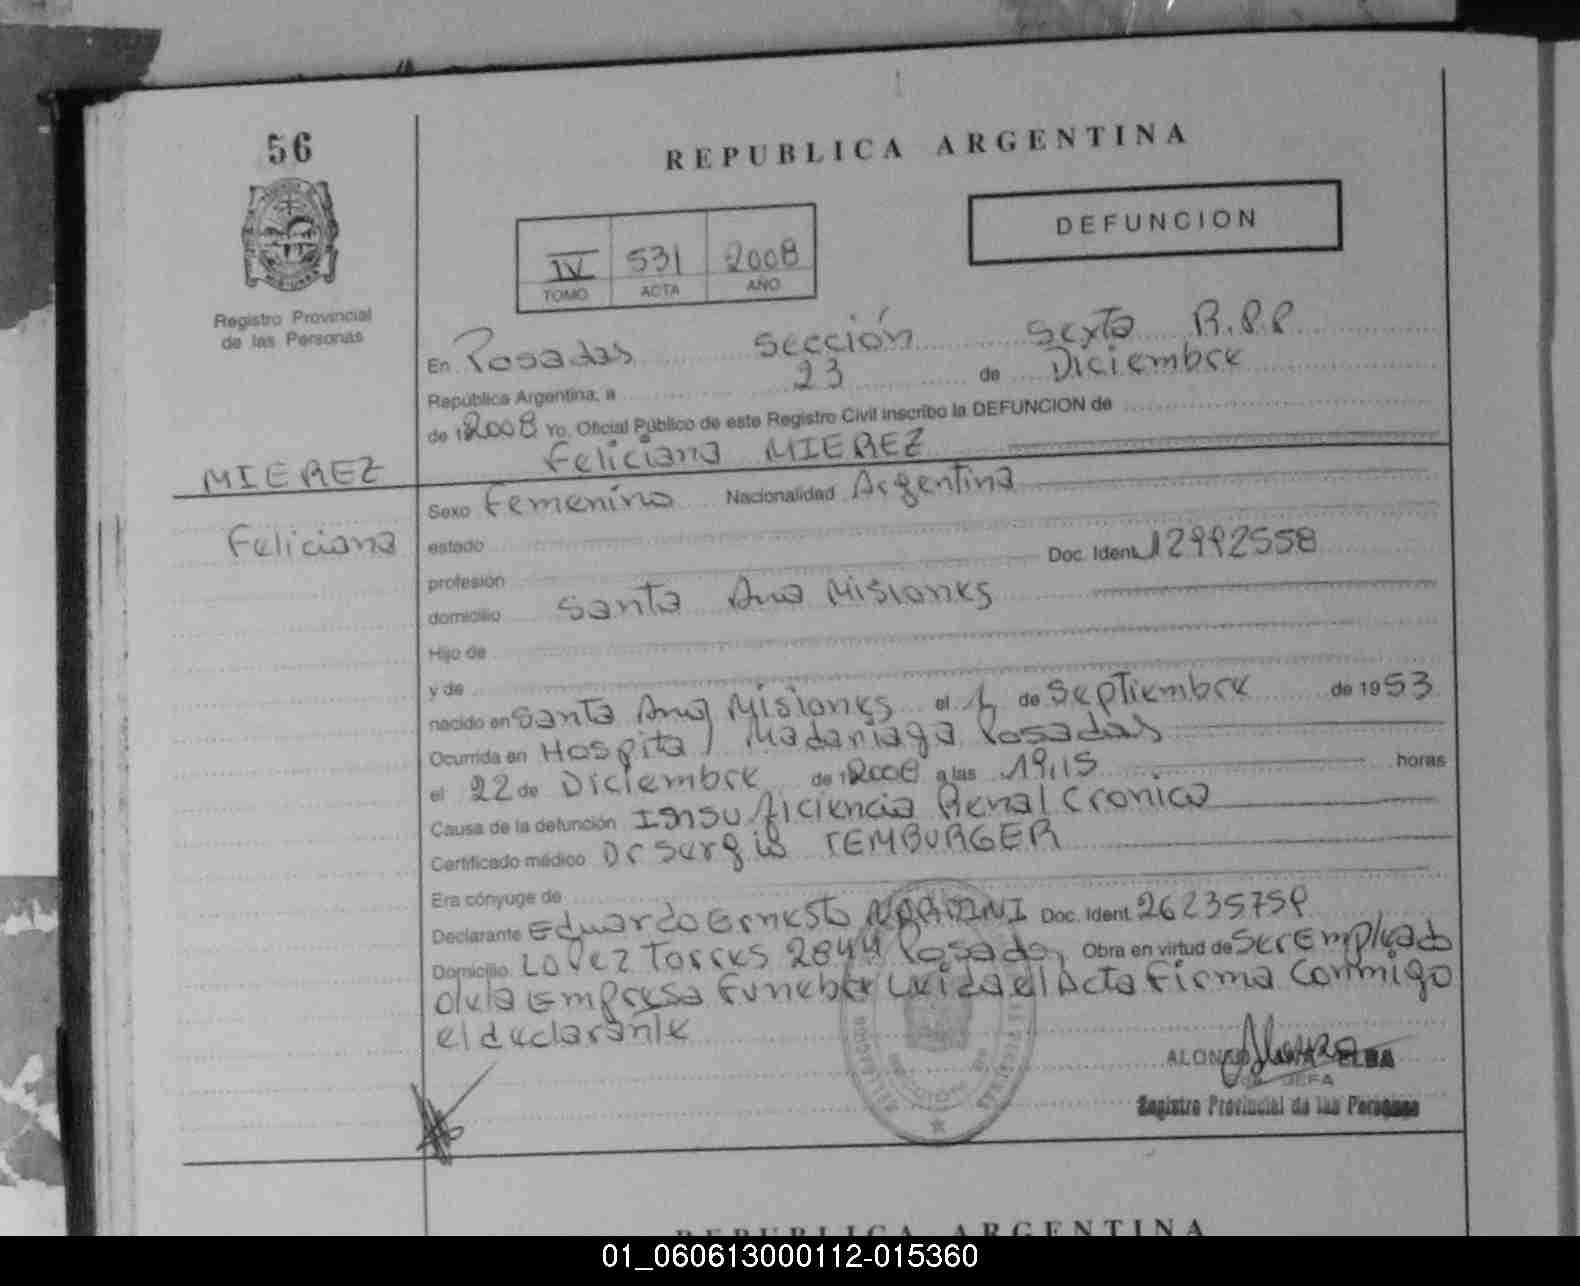 56
REPUBLICA ARGENTINA
DEFUNCION
IV 531 2008
TOMO ACTA AÑO
Registro Provincial
de las Personas
En Posadas Sección Sexta R.P.P
República Argentina, a 23 de Diciembre
de 12008 Yo, Oficial Público de este Registro Civil inscribo la DEFUNCION de
Feliciana MIEREZ
MIEREZ
Feliciana
Sexo Femenino Nacionalidad Argentina
estado
profesión Doc. Ident. 12992558
domicilio Santa Ana Misiones
Hijo de
y de
nacido en Santa Ana Misiones el 1 de Septiembre de 1953
Ocurrida en Hospital Madariaga Posadas
el 22 de Diciembre de 12008 a las 19,15 horas
Causa de la defunción Insuficiencia Renal Cronica
Certificado médico Dr Sergio TEMBURGER
Era cónyuge de
Declarante Eduardo Ernesto Doc. Ident. 26235759
Domicilio Lopez Torres 2844 Posadas Obra en virtud de Ser Empleado
de la Empresa Funebre Leida el Acta Firma Conmigo
el declarante
ALONSO ELBA
JEFA
Registro Provincial de las Personas
REPUBLICA ARGENTINA
01_060613000112-015360